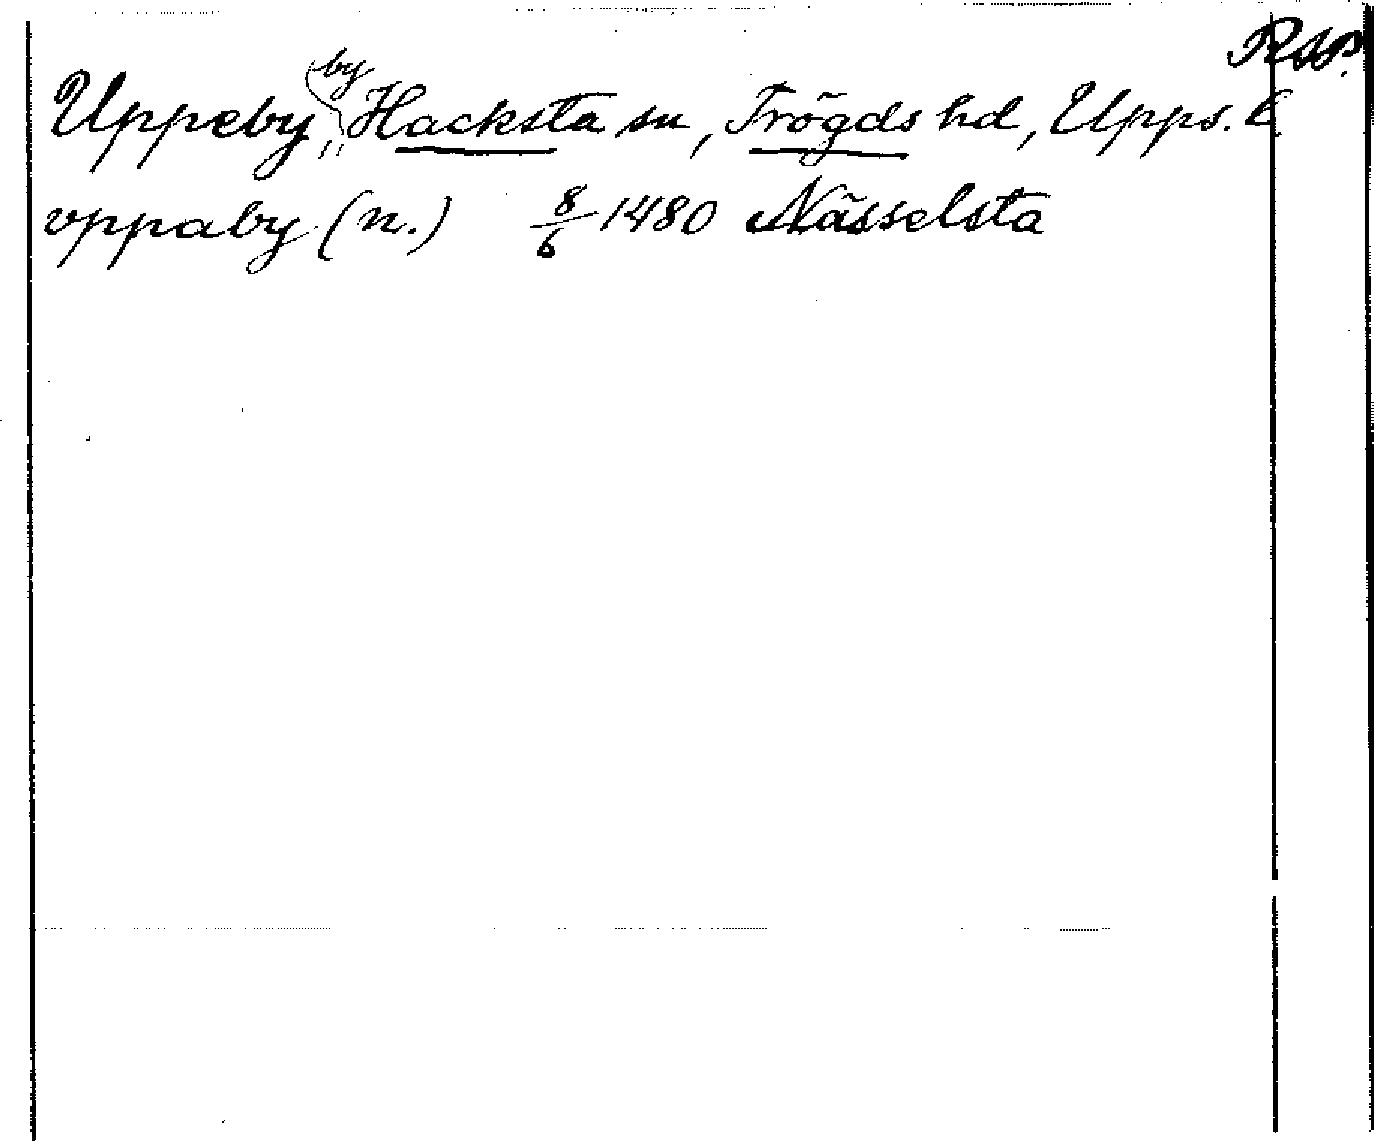 Rap.
Uppeby, by Hacksta sn, Trögds hd, Upps. l.
vppaby (n.) 8/6 1480 Nässelsta